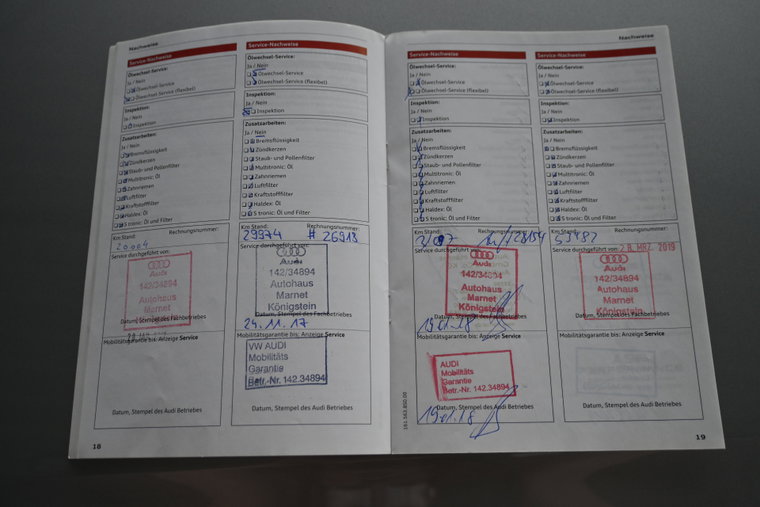 Nachweise
Service-Nachweise
Ölwechsel-Service:
Ja / Nein
Ölwechsel-Service
Ölwechsel-Service (flexibel)
Inspektion:
Ja / Nein
Inspektion
Zusatzarbeiten:
Ja / Nein
Bremsflüssigkeit
Zündkerzen
Staub- und Pollenfilter
Multitronic: Öl
Zahnriemen
Luftfilter
Kraftstofffilter
Haldex: Öl
S tronic: Öl und Filter
Km Stand: Rechnungsnummer:
20004
Service durchgeführt von:
Audi
142/34894
Autohaus
Marnet
Königstein
Datum, Stempel des Fachbetriebes
Mobilitätsgarantie bis: Anzeige Service
Datum, Stempel des Audi Betriebes
18
Service-Nachweise
Ölwechsel-Service:
Ja / Nein
Ölwechsel-Service
Ölwechsel-Service (flexibel)
Inspektion:
Ja / Nein
Inspektion
Zusatzarbeiten:
Ja / Nein
Bremsflüssigkeit
Zündkerzen
Staub- und Pollenfilter
Multitronic: Öl
Zahnriemen
Luftfilter
Kraftstofffilter
Haldex: Öl
S tronic: Öl und Filter
Km Stand: Rechnungsnummer:
29974 # 26918
Service durchgeführt von:
Audi
142/34894
Autohaus
Marnet
Königstein
Datum, Stempel des Fachbetriebes
24.11.17
Mobilitätsgarantie bis: Anzeige Service
VW AUDI
Mobilitäts
Garantie
Betr.-Nr. 142.34894
Datum, Stempel des Audi Betriebes
Nachweise
Service-Nachweise
Ölwechsel-Service:
Ja / Nein
Ölwechsel-Service
Ölwechsel-Service (flexibel)
Inspektion:
Ja / Nein
Inspektion
Zusatzarbeiten:
Ja / Nein
Bremsflüssigkeit
Zündkerzen
Staub- und Pollenfilter
Multitronic: Öl
Zahnriemen
Luftfilter
Kraftstofffilter
Haldex: Öl
S tronic: Öl und Filter
Km Stand: Rechnungsnummer:
28154
Service durchgeführt von:
Audi
142/34894
Autohaus
Marnet
Königstein
Datum, Stempel des Fachbetriebes
19.01.18
Mobilitätsgarantie bis: Anzeige Service
AUDI
Mobilitäts
Garantie
Betr.-Nr. 142.34894
Datum, Stempel des Audi Betriebes
19.01.18
Service-Nachweise
Ölwechsel-Service:
Ja / Nein
Ölwechsel-Service
Ölwechsel-Service (flexibel)
Inspektion:
Ja / Nein
Inspektion
Zusatzarbeiten:
Ja / Nein
Bremsflüssigkeit
Zündkerzen
Staub- und Pollenfilter
Multitronic: Öl
Zahnriemen
Luftfilter
Kraftstofffilter
Haldex: Öl
S tronic: Öl und Filter
Km Stand: Rechnungsnummer:
Service durchgeführt von:
28. MRZ. 2019
Audi
142/34894
Autohaus
Marnet
Königstein
Datum, Stempel des Fachbetriebes
Mobilitätsgarantie bis: Anzeige Service
Datum, Stempel des Audi Betriebes
19